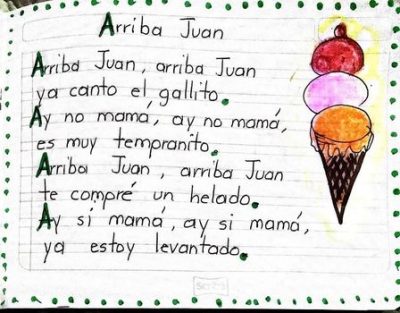 Arriba Juan
Arriba Juan, arriba Juan
ya canto el gallito.
Ay no mamá, ay no mamá,
es muy tempranito.
Arriba Juan, arriba Juan
te compré un helado.
Ay sí mamá, ay si mamá,
ya estoy levantado.